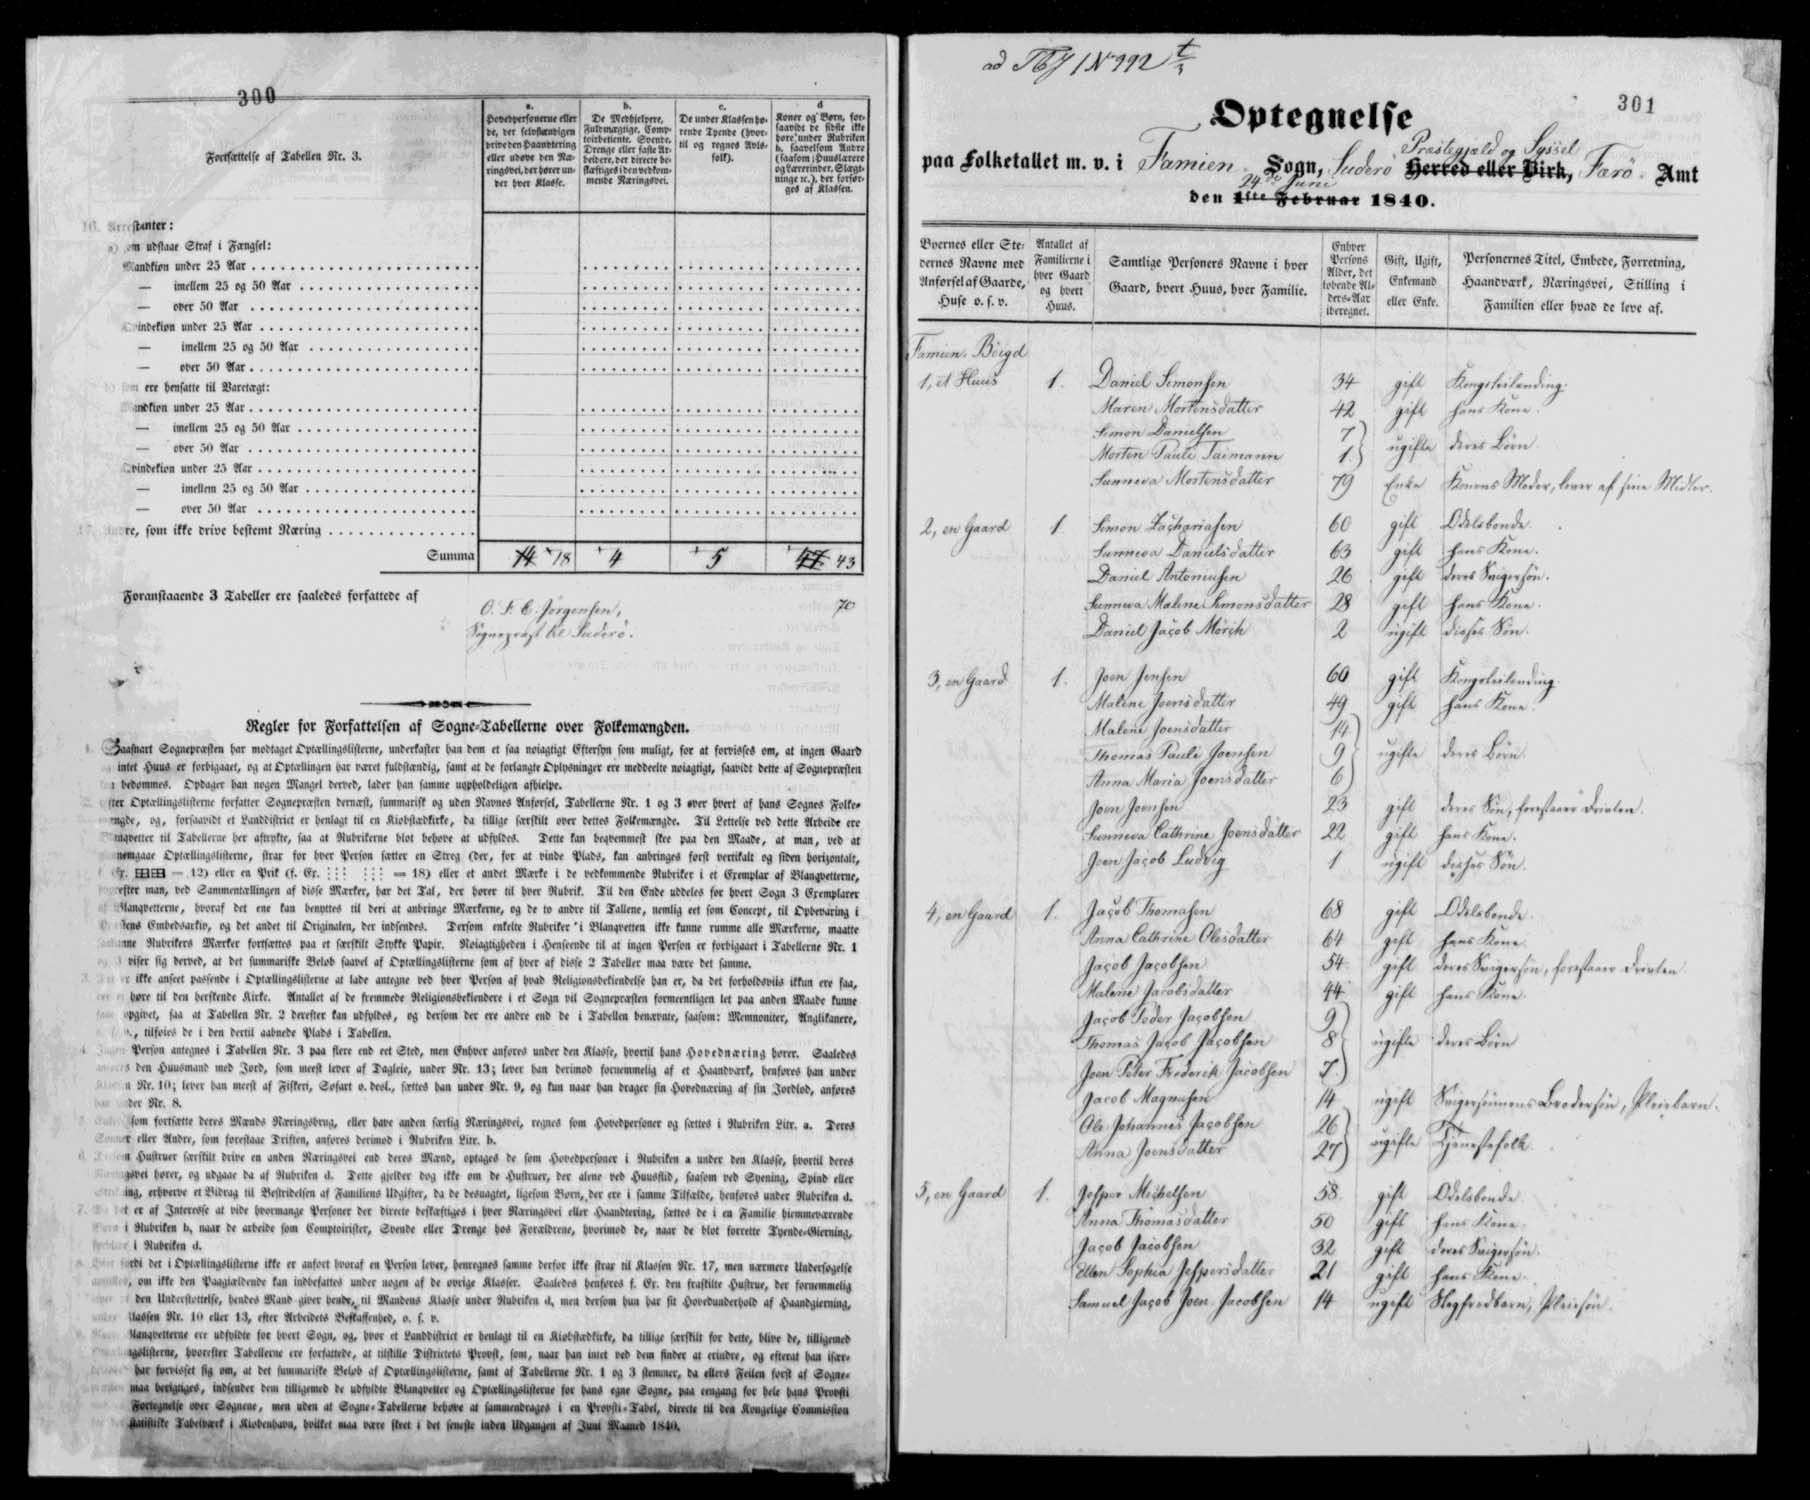 300
Fortsættelse af Tabellen Nr. 3.
a.
Hovedpersonerne eller
de, der selvstændigen
drive den Haandtering
eller udøve den Næ-
ringsvei, der hører un-
der hver Klasse.
b.
De Medhjelpere,
Fuldmægtige, Comp-
toirbetiente, Svende,
Drenge eller faste Ar-
beidere, der directe be-
skæftiges i den vedkom-
mende Næringsvei.
c.
De under Klassen hø-
rende Tyende (hvor-
til og regnes Avls-
folk).
d
Koner og Børn, for-
saavidt de sidste ikke
høre under Rubriken
b, saavelsom Andre
(saasom i Huuslærere
og Lærerinder, Slægt-
ninge ꝛc.), der forsør-
ges af Klassen.
16. Arrestanter:
a) som udstaae Straf i Fængsel:
Mandkiøn under 25 Aar
— imellem 25 og 50 Aar
— over 50 Aar
Qvindekiøn under 25 Aar
— imellem 25 og 50 Aar
— over 50 Aar
b) som ere hensatte til Varetægt:
Mandkiøn under 25 Aar
— imellem 25 og 50 Aar
— over 50 Aar
Qvindekiøn under 25 Aar
— imellem 25 og 50 Aar
— over 50 Aar
17. Andre, som ikke drive bestemt Næring
Summa 14 18 4 5 47 43
Foranstaaende 3 Tabeller ere saaledes forfattede af
O. F. E. Jørgensen, 70
Sognepræst til Suderö.
Regler for Forfattelsen af Sogne-Tabellerne over Folkemængden.
1. Saasnart Sognepræsten har modtaget Optællingslisterne, underkaster han dem et saa nøiagtigt Eftersyn som muligt, for at forvisses om, at ingen Gaard
og intet Huus er forbigaaet, og at Optællingen har været fuldstændig, samt at de forlangte Oplysninger ere meddeelte nøiagtigt, saavidt dette af Sognepræsten
kan bedømmes. Opdager han nogen Mangel derved, lader han samme uopholdeligen afhielpe.
2. Efter Optællingslisterne forfatter Sognepræsten dernæst, summarisk og uden Navnes Anførsel, Tabellerne Nr. 1 og 3 over hvert af hans Sognes Folke-
mængde, og, forsaavidt et Landdistrict er henlagt til en Kiøbstædkirke, da tillige særskilt over dettes Folkemængde. Til Lettelse ved dette Arbeide ere
Blanqvetter til Tabellerne her aftrykte, saa at Rubrikerne blot behøve at udfyldes. Dette kan beqvemmest skee paa den Maade, at man, ved at
giennemgaae Optællingslisterne, strax for hver Person sætter en Streg (der, for at vinde Plads, kan anbringes først vertikalt og siden horizontalt,
f. Ex. — 12) eller en Prik (f. Ex. = 18) eller et andet Mærke i de vedkommende Rubriker i et Exemplar af Blanqvetterne,
hvorefter man, ved Sammentællingen af disse Mærker, har det Tal, der hører til hver Rubrik. Til den Ende uddeles for hvert Sogn 3 Exemplarer
af Blanqvetterne, hvoraf det ene kan benyttes til deri at anbringe Mærkerne, og de to andre til Tallene, nemlig eet som Concept, til Opbevaring i
Præstens Embedsarkiv, og det andet til Originalen, der indsendes. Dersom enkelte Rubriker i Blanqvetten ikke kunne rumme alle Mærkerne, maatte
saadanne Rubrikers Mærker fortsættes paa et særskilt Stykke Papir. Nøiagtigheden i Henseende til at ingen Person er forbigaaet i Tabellerne Nr. 1
og 3 viser sig derved, at det summariske Beløb saavel af Optællingslisterne som af hver af disse 2 Tabeller maa være det samme.
3. Det er ikke anseet passende i Optællingslisterne at lade antegne ved hver Person af hvad Religionsbekiendelse han er, da det forholdsviis ikkun ere faa,
der ei høre til den herskende Kirke. Antallet af de fremmede Religionsbekiendere i et Sogn vil Sognepræsten formeentligen let paa anden Maade kunne
faae opgivet, saa at Tabellen Nr. 2 derefter kan udfyldes, og dersom der ere andre end de i Tabellen benævnte, saasom: Memnoniter, Anglikanere,
, tilføies de i den dertil aabnede Plads i Tabellen.
4. Ingen Person antegnes i Tabellen Nr. 3 paa flere end eet Sted, men Enhver anføres under den Klasse, hvortil hans Hovednæring hører. Saaledes
anføres den Huusmand med Jord, som meest lever af Dagleie, under Nr. 13; lever han derimod fornemmelig af et Haandværk, henføres han under
Klassen Nr. 10; lever han meest af Fiskeri, Søfart o. desl., sættes han under Nr. 9, og kun naar han drager sin Hovednæring af sin Jordlod, anføres
han under Nr. 8.
5. som fortsætte deres Mænds Næringsbrug, eller have anden særlig Næringsvei, regnes som Hovedpersoner og sættes i Rubriken Litr. a. Deres
Sønner eller Andre, som forestaae Driften, anføres derimod i Rubriken Litr. b.
6. Dersom Hustruer særskilt drive en anden Næringsvei end deres Mænd, optages de som Hovedpersoner i Rubriken a under den Klasse, hvortil deres
Næringsvei hører, og udgaae da af Rubriken d. Dette gjelder dog ikke om de Hustruer, der alene ved Huusflid, saasom ved Syening, Spind eller
Strikning, erhverve et Bidrag til Bestridelsen af Familiens Udgifter, da de desuagtet, ligesom Børn, der ere i samme Tilfælde, henføres under Rubriken d.
7. Da det er af Interesse at vide hvormange Personer der directe beskæftiges i hver Næringsvei eller Haandtering, sættes de i en Familie hiemmeværende
Børn i Rubriken b, naar de arbeide som Comptoirister, Svende eller Drenge hos Forældrene, hvorimod de, naar de blot forrette Tyende-Gierning,
i Rubriken d.
8. fordi det i Optællingslisterne ikke er anført hvoraf en Person lever, henregnes samme derfor ikke strax til Klassen Nr. 17, men nærmere Undersøgelse
, om ikke den Paagiældende kan indbefattes under nogen af de øvrige Klasser. Saaledes henføres f. Ex. den fraskilte Hustrue, der fornemmelig
den Understøttelse, hendes Mand giver hende, til Mandens Klasse under Rubriken d, men dersom hun har sit Hovedunderhold af Haandgierning,
Klassen Nr. 10 eller 13, efter Arbeidets Beskaffenhed, o. s. v.
9. Blanqvetterne ere udfyldte for hvert Sogn, og, hvor et Landdistrict er henlagt til en Kiøbstædkirke, da tillige særskilt for dette, blive de, tilligemed
Optællingslisterne, hvorefter Tabellerne ere forfattede, at tilstille Districtets Provst, som, naar han intet ved dem finder at erindre, og efterat han især
har forvisset sig om, at det summariske Beløb af Optællingslisterne, samt af Tabellerne Nr. 1 og 3 stemmer, da ellers Feilen først af Sogne-
præsten maa berigtiges, indsender dem tilligemed de udfyldte Blanqvetter og Optællingslisterne for hans egne Sogne, paa eengang for hele hans Provsti
Fortegnelse over Sognene, men uden at Sogne-Tabellerne behøve at sammendrages i en Provsti-Tabel, directe til den Kongelige Commission
for det statistiske Tabelværk i Kiøbenhavn, hvilket maa være skeet i det seneste inden Udgangen af Juni Maaned 1840.
ad
N 992
301
Optegnelse
Præstegjæld og Syssel
paa Folketallet m. v. i Famien Sogn, Suderö Herred eller Birk, Færö Amt
24de Juni
den 1ste Februar 1840.
Byernes eller Ste-
dernes Navne med
Anførsel af Gaarde,
Huse o. s. v.
Antallet af
Familierne i
hver Gaard
og hvert
Huus.
Samtlige Personers Navne i hver
Gaard, hvert Huus, hver Familie.
Enhver
Persons
Alder, det
løbende Al-
ders-Aar
iberegnet.
Gift, Ugift,
Enkemand
eller Enke.
Personernes Titel, Embede, Forretning,
Haandværk, Næringsvei, Stilling i
Familien eller hvad de leve af.
Famien. Böigd
1, et Huus 1. Daniel Simonsen 34 gift Kongsleilending.
Maren Mortensdatter 42 gift hans Kone.
Simon Danielsen 7
Morten Pauli Taimann 1. ugifte deres Börn.
Sunneva Mortensdatter 79 Enke Konens Moder, lever af sine Midler.
2, en Gaard 1. Simon Zachariasen 60 gift Odelsbonde.
Sunneva Danielsdatter 63 gift hans Kone.
Daniel Antoniusen 26 gift deres Svigersön.
Sunneva Malene Simonsdatter 28 gift hans Kone.
Daniel Jacob Mörch 2 ugift disses Sön.
3, en Gaard 1. Joen Jensen 60 gift Kongsleilending.
Malene Joensdatter 49 gift hans Kone.
Malene Joensdatter 14
Thomas Pauli Joensen 9 ugifte deres Börn.
Anna Maria Joensdatter 6
Joen Joensen 23 gift deres Sön, forestaaer Drivten.
Sunneva Cathrine Joensdatter 22 gift hans Kone.
Joen Jacob Ludvig 1 ugift disses Sön.
4, en Gaard 1. Jacob Thomasen 68 gift Odelsbonde.
Anna Cathrine Olesdatter 64 gift hans Kone.
Jacob Jacobsen 54 gift deres Svigersön, forestaaer Drivten.
Malene Jacobsdatter 44 gift hans Kone.
Jacob Peder Jacobsen 9
Thomas Jacob Jacobsen 8 ugifte deres Börn
Joen Peter Frederik Jacobsen 7.
Jacob Magnusen 14 ugift Svigersönnens Brodersön, Pleiebarn.
Ole Johannes Jacobsen 26
Anna Joensdatter 27 ugifte Tjenestefolk.
5, en Gaard 1. Jesper Michelsen 58 gift Odelsbonde.
Anna Thomasdatter 50 gift hans Kone.
Jacob Jacobsen 32 gift deres Svigersön.
Ellen Sophia Jespersdatter 21 gift hans Kone.
Samuel Jacob Joen Jacobsen 14 ugift Slegfredbarn, Pleiesön.